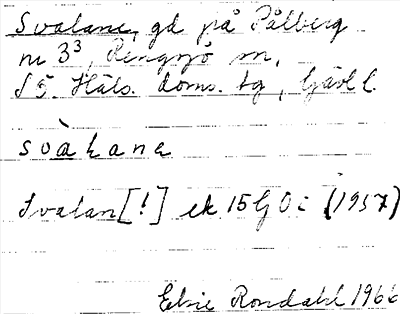 Svalane, gd på Pålberg
nr 3³, Rengsjö sn,
S 5. Häls. doms. tg, Gävl l.
svàlane
Svalan[!] ek 15G0i (1957)
Elsie Rondahl 1966